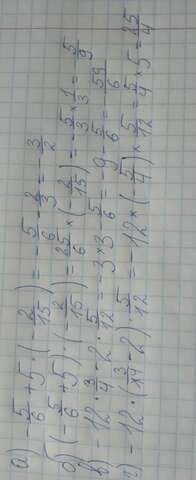 а) -5/6 + 5 · (-2/15) = -5/6 - 2/3 = -3/2
б) (-5/6 + 5) · (-2/15) = 25/6 × (-2/15) = -5/3 × 1/3 = 5/9
в) -12 · 3/4 - 2 · 5/12 = -3 × 3 - 5/6 = -9 - 5/6 = 59/6
г) -12 · (3/4 - 2) · 5/12 = -12 × (-5/4) × 5/12 = 5/4 × 5 = 25/4